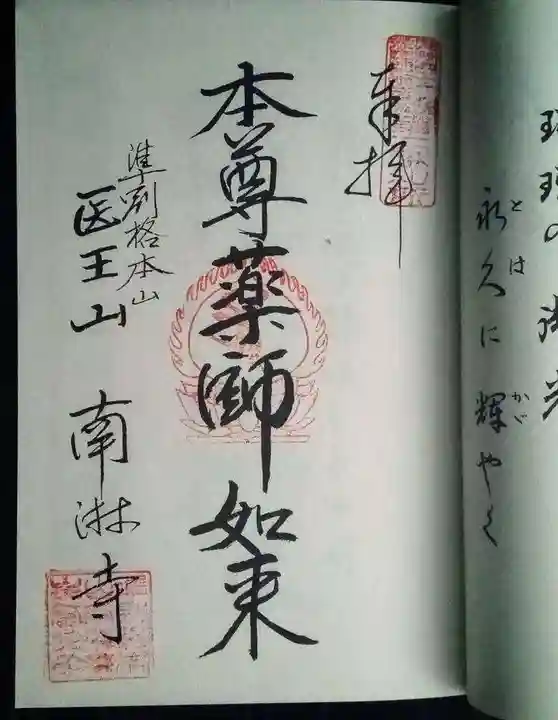 瑠璃の御光
永久に輝やく
とは
かゞ
奉拝
本尊薬師如来
準別格本山
医王山 南淋寺